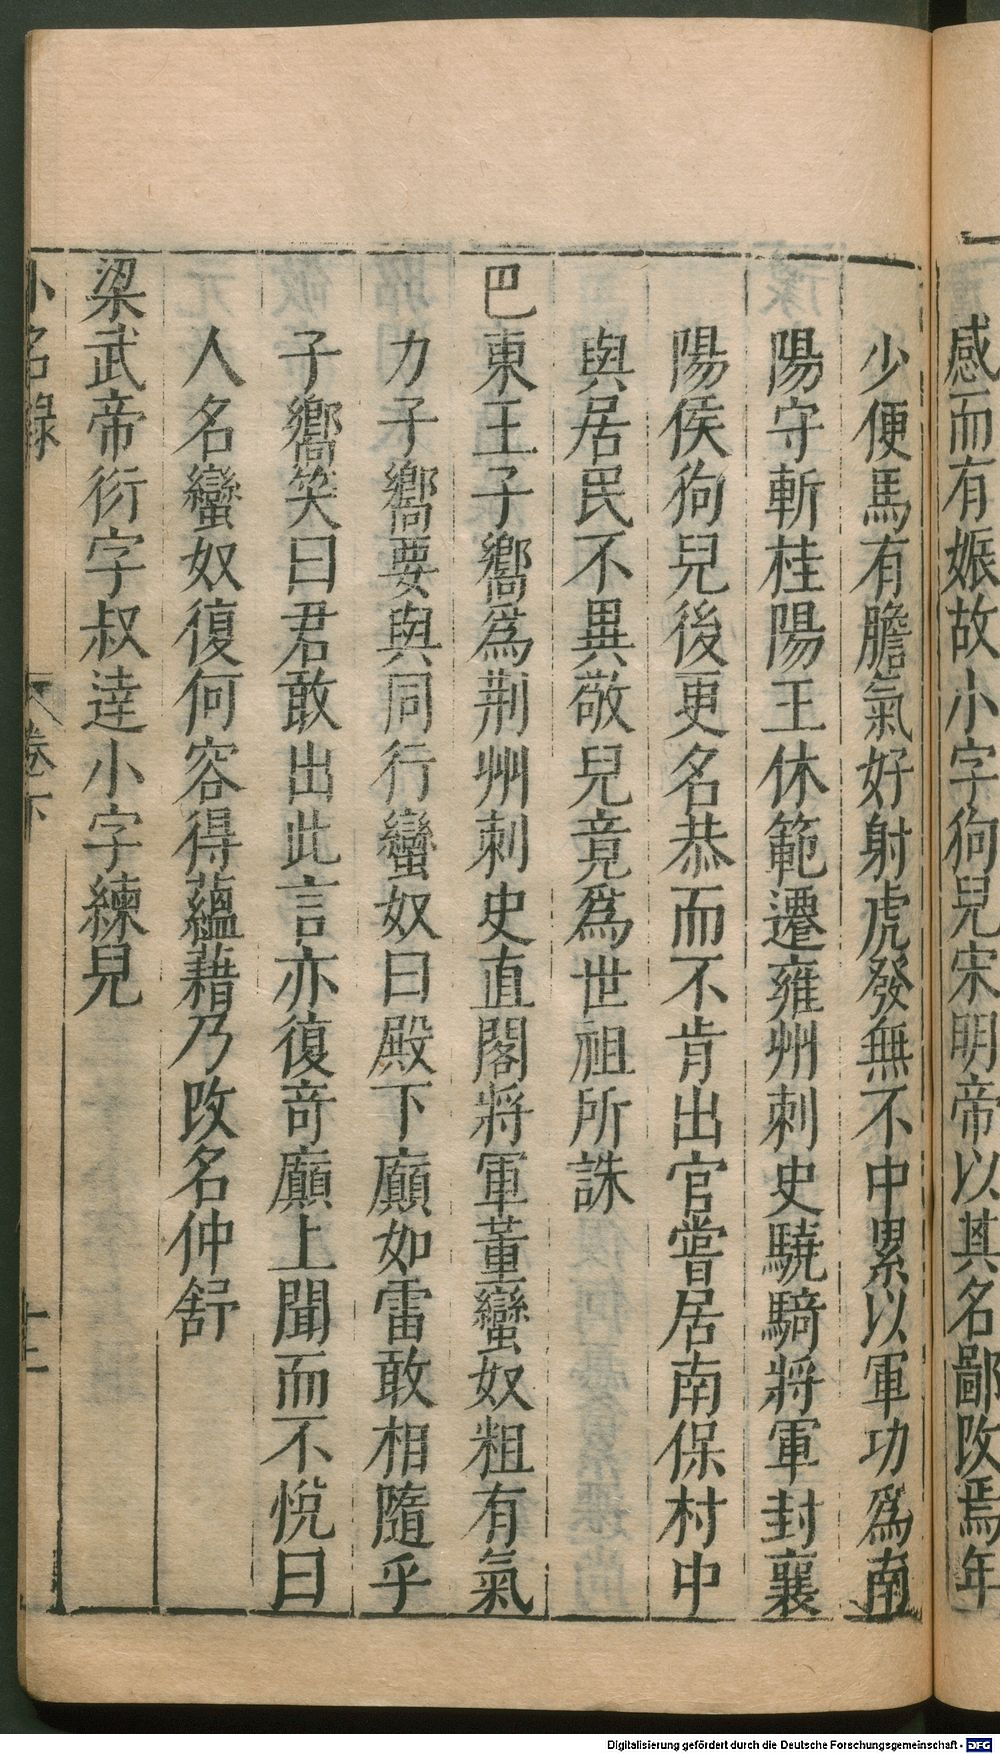 感而有娠故小字狗兒宋明帝以其名鄙改焉年
少便馬有膽氣好射虎發無不中累以軍功爲南
陽守斬桂陽王休範遷雍州刺史驍騎將軍封襄
陽侯狗兒後更名恭而不肯出官嘗居南保村中
與居民不異敬兒竟爲世祖所誅
巴東王子嚮爲荆州刺史直閣將軍董蠻奴粗有氣
力子嚮要與同行蠻奴曰殿下癲如雷敢相隨乎
子嚮笑曰君敢出此言亦復奇癲上聞而不悅曰
人名蠻奴復何容得蘊藉乃改名仲舒
梁武帝衍字叔達小字練兒
小名錄 卷下 十二
Digitalisierung gefördert durch die Deutsche Forschungsgemeinschaft - DFG